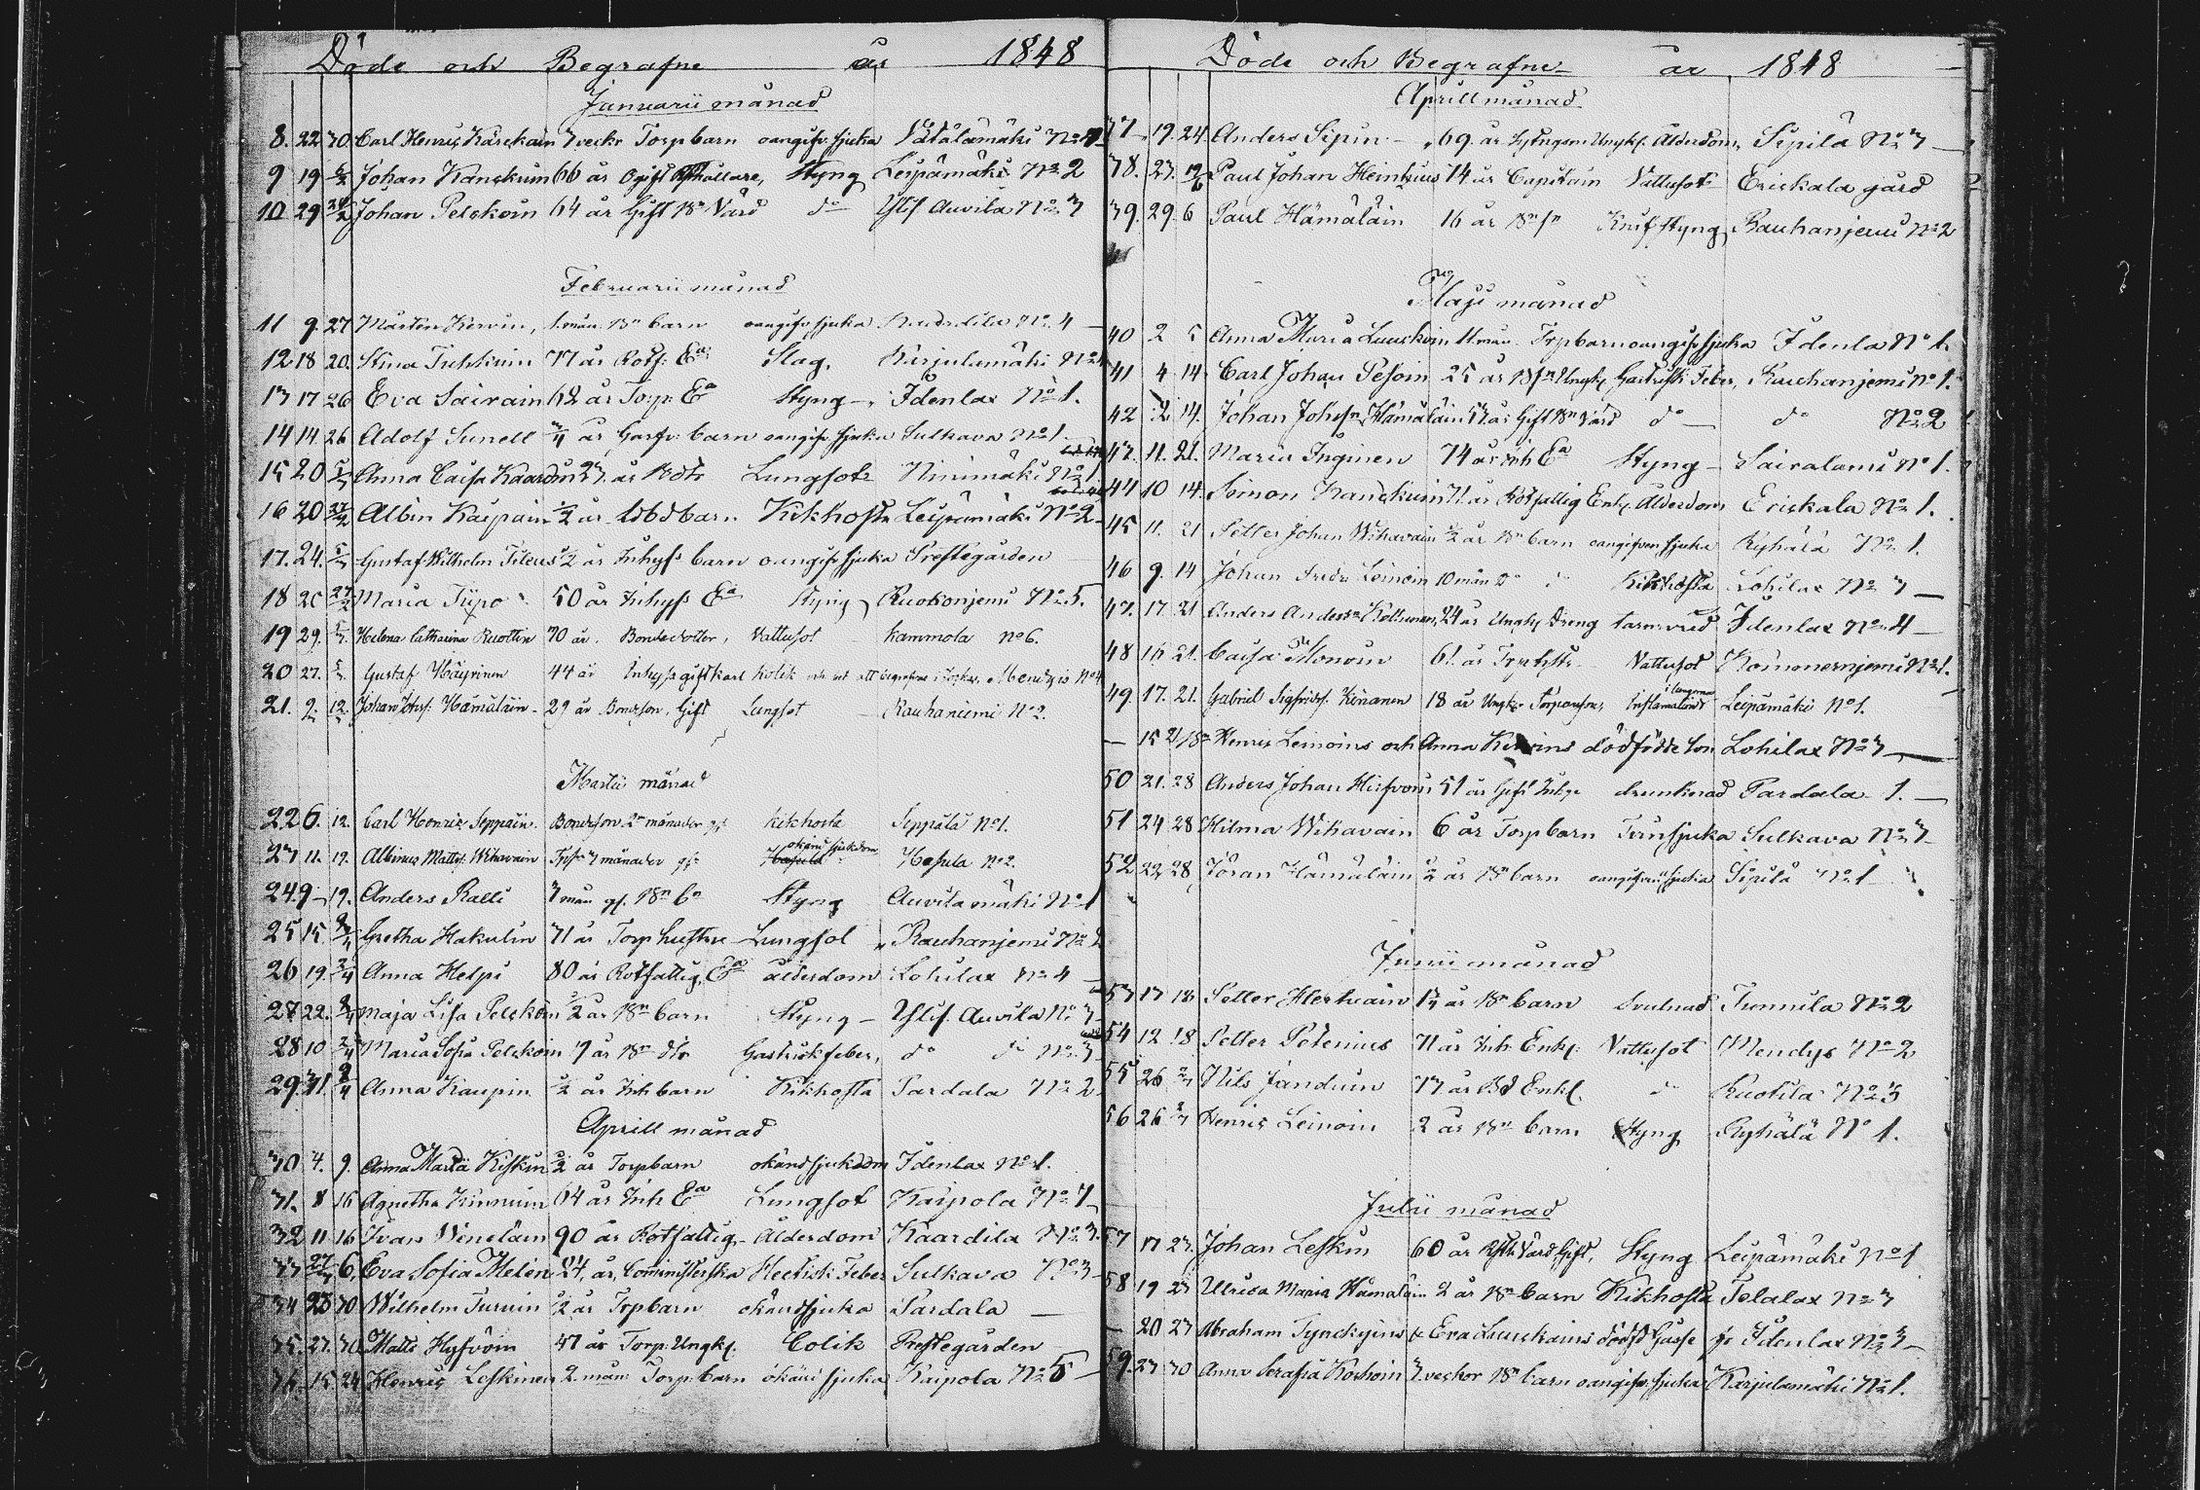 Döde och Begrafne år 1848
Januarii månad
8. 22 30. Carl Henric Kärckäin 7 veckr Torp barn oangifv. sjuka
9 19 Johan Kanckuin 66 år Ogift Styng Leipämäki No 2
10 29 Johan Pelckoin 64 år Gift Bn Värd do Ylif Auvila No 3
Februarii månad
11 9. 27 Mårten 1. mån. Bn barn oangifv sjuka No 4
12 18 20. Stina Tuhkuin 77 år Rotf. Ea Slag. Karjulamäki
13 17 26 Eva Sairain 62 år Torp. Ea Styng Idenlax No 1.
14 14 26 Adolf Sunell 3/4 år barn oangifv sjuka Sulkava No 1
15 20 5/3 Anna Caisa 23 år Bdtr Lungsot Niinimäki No 1
16 20 Albin Kaipain 1/2 år barn Kikhosta Leipämäki No 2
17. 24. 5/3 Gustaf Wilhelm Inhyss barn oangifv sjuka Prestegården
18 20 27/2 Maria Tiipo 50 år Inhyss Ea Styng Ruokonjemi No 5.
19 29. Helena Catharina Ruottin 70 år. Bondedotter, Vattusot Kammola No 6.
20 27. Gustaf Häyrinen 44 år Inhyss gift karl Kolik och ut att begrafvas i Mendyis No 4
21. 9. 12. Johan Johs. Hämäläin 29 år Bondeson, Gift Lungsot Rauhaniemi No 2.
Martii månad
22 6. 12. Carl Henric Seppäin Bondeson 2 månader gl. kikhosta Seppälä No 1.
23 11. 19. Albinus Matts. Wihavain 3 månader gl. okänd sjukdom Hasula No 2.
24 9 19. Anders Ralli 3 mån gl. Bn bn Styng Auvilamäki No 1
25 15. 2/4 Gretha Hakulin 71 år Torp hustru Lungsot Rauhanjemi No 2
26 19. 2/4 Anna Helpi 80 år Rotfattig, Ea ålderdom Lohilax No 4
27 22. 2/4 Maja Lisa Pelckoin 1/2 år Bn barn Styng Ylif. Auvila No 3
28 10 2/4 Maria Sofia Pelckoin år Bn dtr Gastrisk feber, do do No 3
29. 31. 2/4 Anna Kaupin 1/2 år Inh barn Kikhosta Pardala No 2
Aprill månad
30 4. 9. Anna Maria Kiskin 1/2 år Torpbarn okänd sjukdom Idenlax No 1.
31. 8 16 Agnetha Kinnuin 64 år Inh Ea Lungsot Kaipola No 7
32 11 16 Ivar Wenäläin 90 år Rotfattig Ålderdom Kaardila No 3.
33 27/3 6. Eva Sofia Melén år, Cominsterska Hectisk Feber Sulkava No 3
34 23 30 Wilhelm Turuin 1/2 år Trpbarn okänd sjuka Pardala
35. 27. 30. Matts Hyfvöin 47 år Torp. Ungk. Colik Prestegården
36. 15 24 Henric Leskinen 2. mån Torp. barn okänd sjuka Kaipola No 5
Döde och Begrafne år 1848
Aprill månad
37 19. 24. Anders Sipin 69 år Ungk. Ålderdom, Sipilä No 3
38. 23. Paul Johan Heintzius 74 år Capitain Vattusot Erickala gård
39. 29. 6 Paul Hämäläin 16 år Bn sn Knif Styng Rauhanjemi No 2
Maji månad
40 2 5 Anna Maria Luuckoin 11 mån. Trpbarn oangifv sjuka Idenlax No 1.
41 4 14 Carl Johan Pesoin 25 år Bsn Ungk. Gastrisk Feber, Rauhanjemi No 1.
42 2 14. Johan Johsn Hämäläin år Gift Bn Värd do do No 2
43. 11. 21. Maria Inginen 74 år Inh Ea Styng Sairalami No 1.
44 10 14. Simon Kanckuin 71 år Rotfattig Enk. Ålderdom, Erickala No 1.
45 11. 21 Petter Johan Wihavain 1/2 år Bn barn oangifven sjuka Ryhälä No 1.
46 9. 14 Johan Fredr Leinoin 10 mån Do do Kikhosta Lohilax No 3
47. 17. 21 Anders Andersn Kolhunen, 24 år Ungk. Dreng tarmvred Idenlax No 4
48 16 21. Caisa Monoin 61. år Trphstr Vattusot Komonenjemi No 1.
49. 17. 21. Gabriel Sigfridsf. Kinanen 18 år Ungk. Torparson, Inflamation i lungorna Leipämäki No 1.
— 15 21 Bn Henric Leinoins och Anna dödfödde son Lohilax No 3
50 21. 28 Anders Johan Hirfvoin 51 år Gift Inhys drunknad Pardala 1.
51 24 28 Hilma Wihavain 6 år Torpbarn Sulkava No 3
52 22 28 Göran Hämäläin 1/2 år Bn barn oangifven sjuka Sipilä No 1
Junii månad
53 13 18 Petter Herkväin år Bn barn Svulnad Tunnila No 2
54 12 18 Petter Petenius 71 år Inh. Enk. Vattusot Mendys No 2
55 26 2/7 Nils Janduin 73 år Bd Enkl. do Ruotila No 3
56 26 2/7 Henric Leinoin 2 år Bn barn Styng Ryhälä No 1.
Julii månad
57 17 23. Johan Leskin 60 år Värd, Gift, Styng Leipämäki No 1
58 19 23 Ulrica Maria Hämäläin 2 år Bn barn Kikhosta Telalax No 3
— 20 23 Abraham Tynckyins & Eva Luuckains dödfd Gosse fr Idenlax No 3
59. 23 30 Anna Serafia Korhoin 3. veckor Bn barn oangifv. sjuka Karjulamäki No 1.